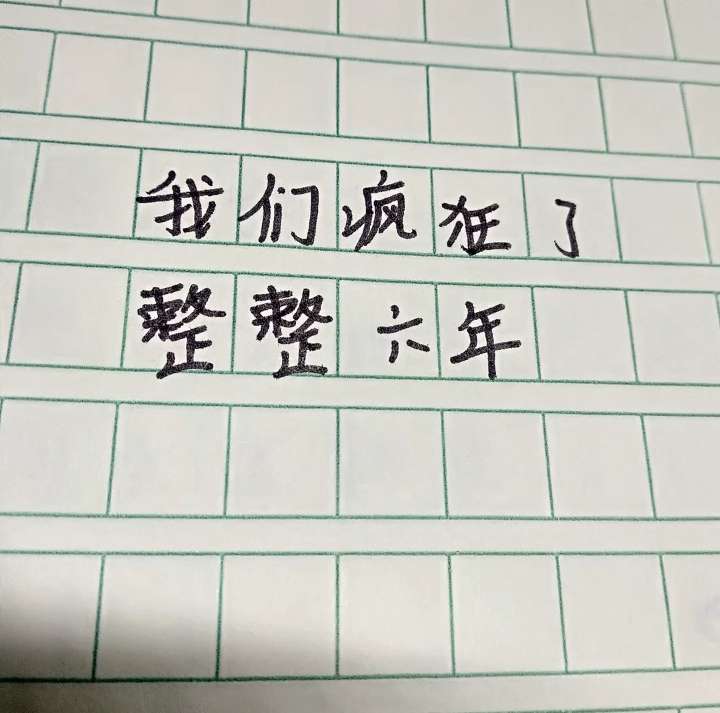 我们疯狂了
整整六年